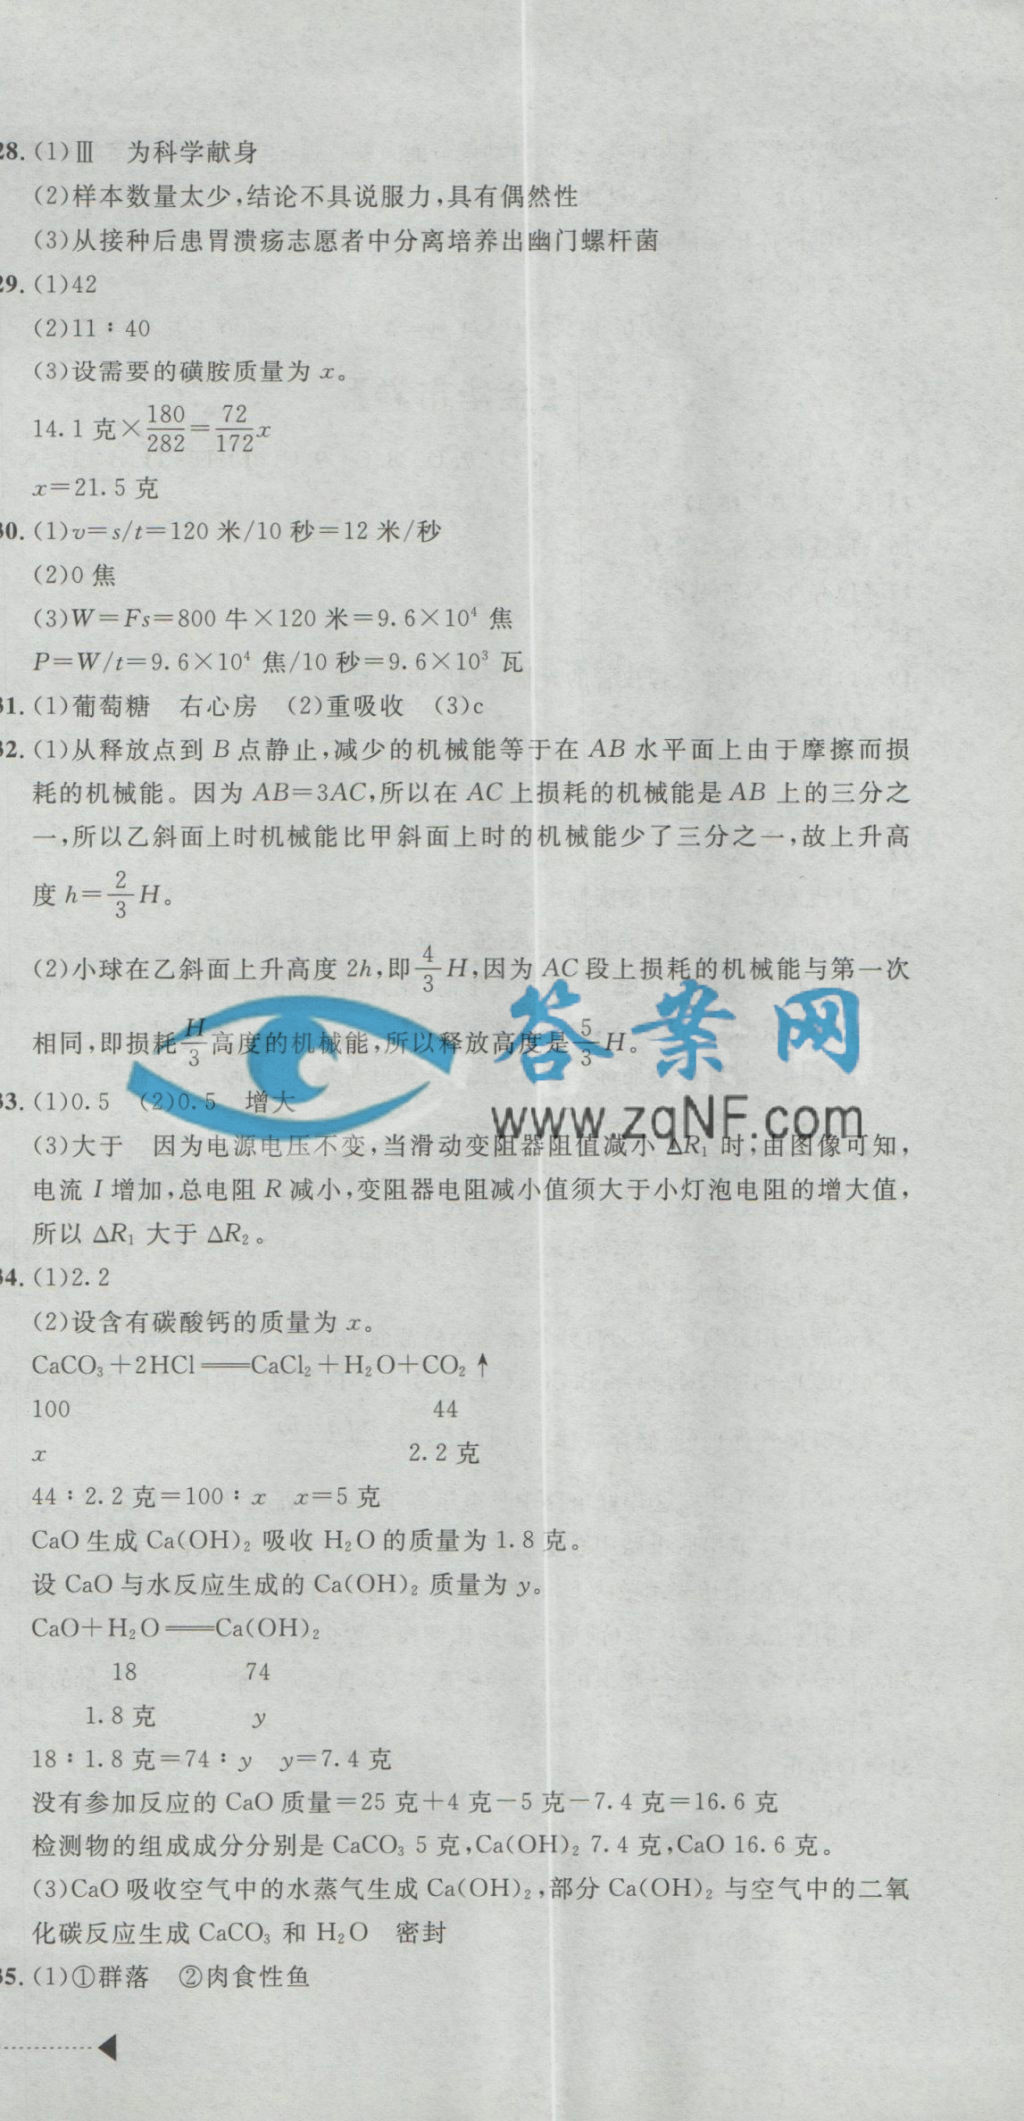 28. (1)Ⅲ 为科学献身
(2)样本数量太少,结论不具说服力,具有偶然性
(3)从接种后患胃溃疡志愿者中分离培养出幽门螺杆菌
29. (1)42
(2)11∶40
(3)设需要的磺胺质量为 x。
14.1 克×180/282=72/172x
x=21.5 克
30. (1)v=s/t=120 米/10 秒=12 米/秒
(2)0 焦
(3)W=Fs=800 牛×120 米=9.6×10⁴ 焦
P=W/t=9.6×10⁴ 焦/10 秒=9.6×10³ 瓦
31. (1)葡萄糖 右心房 (2)重吸收 (3)c
32. (1)从释放点到 B 点静止,减少的机械能等于在 AB 水平面上由于摩擦而损
耗的机械能。因为 AB=3AC,所以在 AC 上损耗的机械能是 AB 上的三分之
一,所以乙斜面上时机械能比甲斜面上时的机械能少了三分之一,故上升高
度 h=2/3H。
(2)小球在乙斜面上升高度 2h,即4/3H,因为 AC 段上损耗的机械能与第一次
相同,即损耗H/3高度的机械能,所以释放高度是5/3H。
答案网
www.zqNF.com
33. (1)0.5 (2)0.5 增大
(3)大于 因为电源电压不变,当滑动变阻器阻值减小 ΔR₁ 时;由图像可知,
电流 I 增加,总电阻 R 减小,变阻器电阻减小值须大于小灯泡电阻的增大值,
所以 ΔR₁ 大于 ΔR₂。
34. (1)2.2
(2)设含有碳酸钙的质量为 x。
CaCO₃+2HCl══CaCl₂+H₂O+CO₂↑
100 44
x 2.2 克
44∶2.2 克=100∶x x=5 克
CaO 生成 Ca(OH)₂ 吸收 H₂O 的质量为 1.8 克。
设 CaO 与水反应生成的 Ca(OH)₂ 质量为 y。
CaO+H₂O══Ca(OH)₂
18 74
1.8 克 y
18∶1.8 克=74∶y y=7.4 克
没有参加反应的 CaO 质量=25 克+4 克-5 克-7.4 克=16.6 克
检测物的组成成分分别是 CaCO₃ 5 克,Ca(OH)₂ 7.4 克,CaO 16.6 克。
(3)CaO 吸收空气中的水蒸气生成 Ca(OH)₂,部分 Ca(OH)₂ 与空气中的二氧
化碳反应生成 CaCO₃ 和 H₂O 密封
35. (1)①群落 ②肉食性鱼